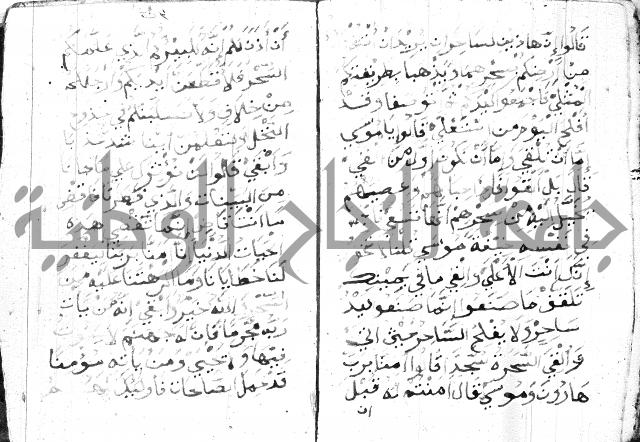 قالوا إن هاذين لساحران يريدان أن
من أرضكم بسحرهما ويذهبا بطريقتكم
المثلى فاجمعوا كيدكم صفا وقد
أفلح اليوم من استعلى قالوا يا موسى
إما أن تلقي وإما أن نكون من ألقى
قال بل ألقوا فإذا حبالهم وعصيهم
يخيل إليه من سحرهم أنها تسعى
في نفسه خيفة موسى قلنا لا تخف
إنك أنت الأعلى وألق ما في يمينك
تلقف ما صنعوا إنما صنعوا كيد
ساحر ولا يفلح الساحر حيث أتى
فألقي السحرة سجدا قالوا امنا برب
هارون وموسى قال امنتم له قبل
أن
أن أذن لكم إنه لكبيركم الذي علمكم
السحر فلأقطعن أيديكم وأرجلكم
من خلاف ولأصلبنكم في جذوع
النخل ولتعلمن أينا أشد عذابا
وأبقى قالوا لن نؤثرك على ما جانا
من البينات والذي فطرنا فاقض
ما أنت قاض إنما تقضي هذه
الحيات الدنيا إنا امنا بربنا ليغفر
لنا خطايانا وما أكرهتنا عليه من
السحر والله خير وأبقى إنه من يات
ربه مجرما فإن له جهنم لا يموت
فيها ولا يحيى ومن ياته مومنا
قد عمل الصالحات فأوليك لهم
جامعة النجاح الوطنية